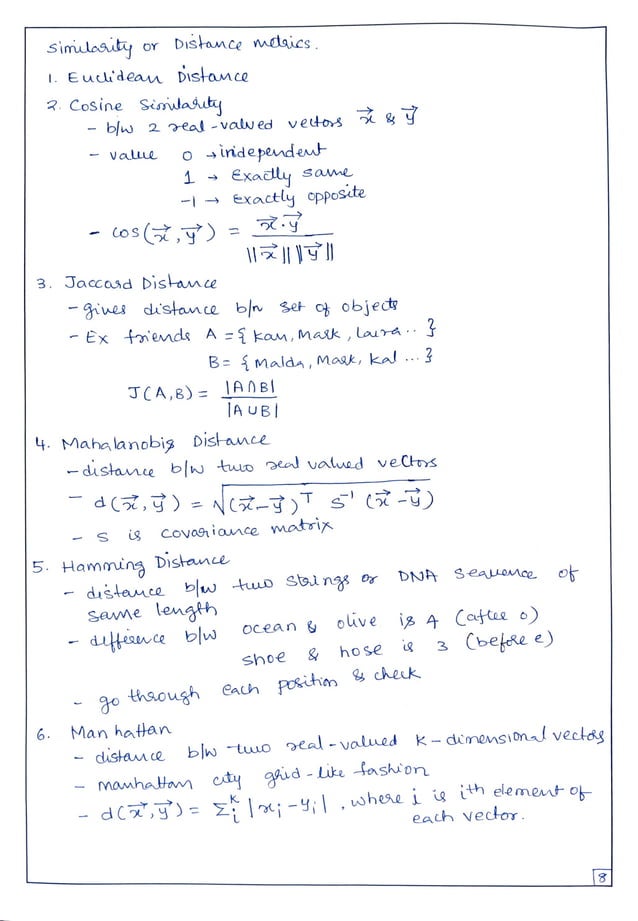 Similarity or Distance metrics.
1. Euclidean Distance
2. Cosine Similarity
- b/w 2 real-valued vectors x⃗ & y⃗
- value 0 → independent
1 → Exactly same
-1 → Exactly opposite
- cos(x⃗, y⃗) = x⃗·y⃗ / ||x⃗|| ||y⃗||
3. Jaccard Distance
- gives distance b/n set of objects
- Ex friends A = {Kan, Mark, Laira.. }
B = {Malda, Mark, Kal ... }
J(A,B) = |A∩B| / |A∪B|
4. Mahalanobis Distance
- distance b/w two real valued vectors
- d(x⃗, y⃗) = √(x⃗-y⃗)ᵀ S⁻¹ (x⃗-y⃗)
- S is covariance matrix
5. Hamming Distance
- distance b/w two strings or DNA sequence of
same length
- difference b/w ocean & olive is 4 (after o)
shoe & hose is 3 (before e)
- go through each position & check
6. Manhattan
- distance b/w two real-valued K-dimensional vectors
- manhattan city grid-like fashion
- d(x⃗, y⃗) = Σᵢᵏ |xᵢ-yᵢ|, where i is ith element of
each vector.
8